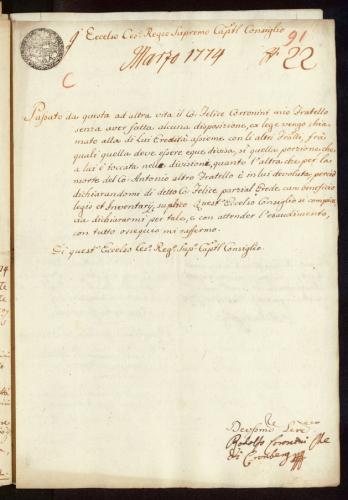 Eccelso Ces° Regio Supremo Capitl Consiglio
91
Marzo 1774
22
C
Passato da questa ad altra vita il Co: Felice Corronini mio Fratello
senza aver fatta alcuna disposizione, ex lege vengo chia-
mato alla di lui Eredità assieme con li altri Fratlli, frà
quali quella deve essere egue divisa, sì quella porzione, che
a lui è toccata nella divisione, quanto l'altra, che per la
morte del Co: Antonio altro Fratello è in lui devoluta, perciò
dichiarandomi di detto Co: Felice parzial Erede cum beneficio
legis et Inventarij, suplico Quest' Eccelso Consiglio si compiac-
cia dichiararmi per tale, e con attender l'esaudimento,
con tutto ossequio mi raffermo.
Di quest' Eccelso Ces° Reg° Sup° Capitl Consiglio
Rodolfo Coronini
di Cronberg